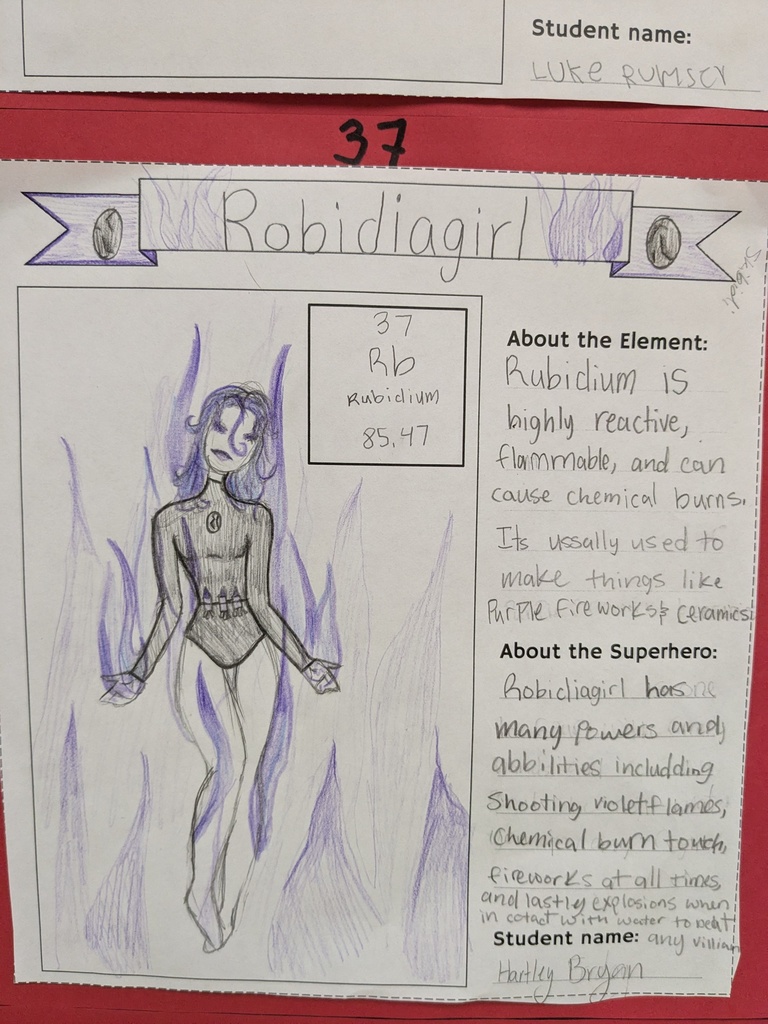 Student name:
LUKE RUMSEY
37
Robidiagirl
37
Rb
Rubidium
85.47
About the Element:
Rubidium is
highly reactive,
flammable, and can
cause chemical burns.
Its ussally used to
make things like
Purple fireworks & ceramics
About the Superhero:
Robidiagirl has
many powers and
abbilities includding
Shooting violet flames,
Chemical burn touch,
fireworks at all times,
and lastly explosions when
in cotact with water to beat
any villian
Student name:
Hartley Bryan